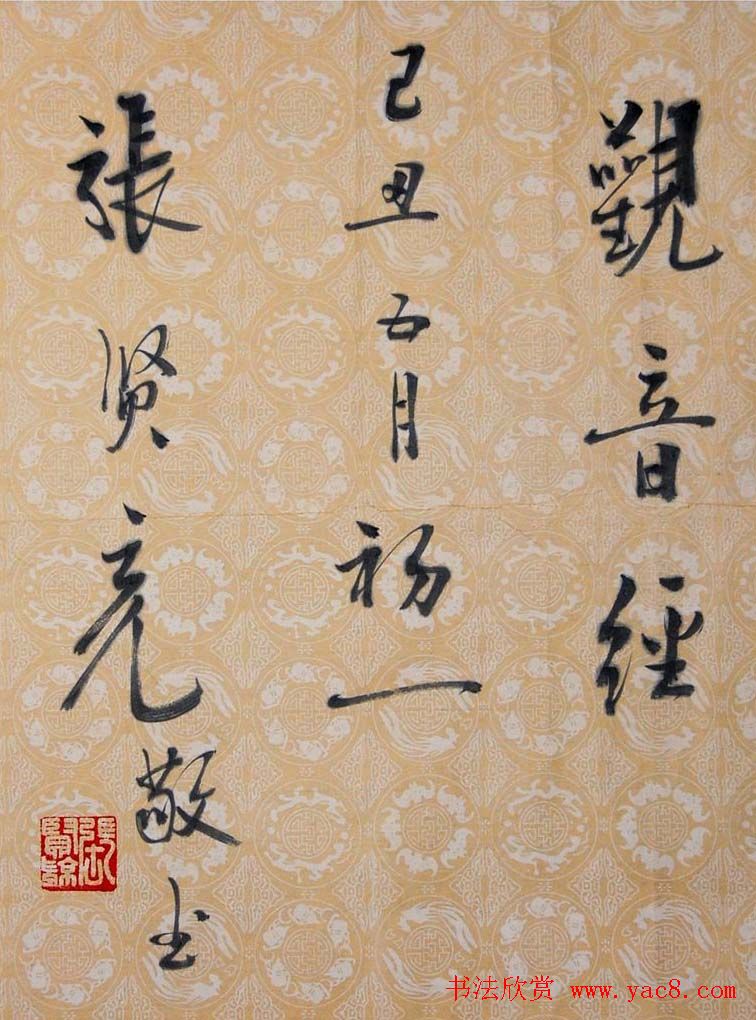 觀音經
己丑五月初一
張贤亮敬书
书法欣赏 www.yac8.com